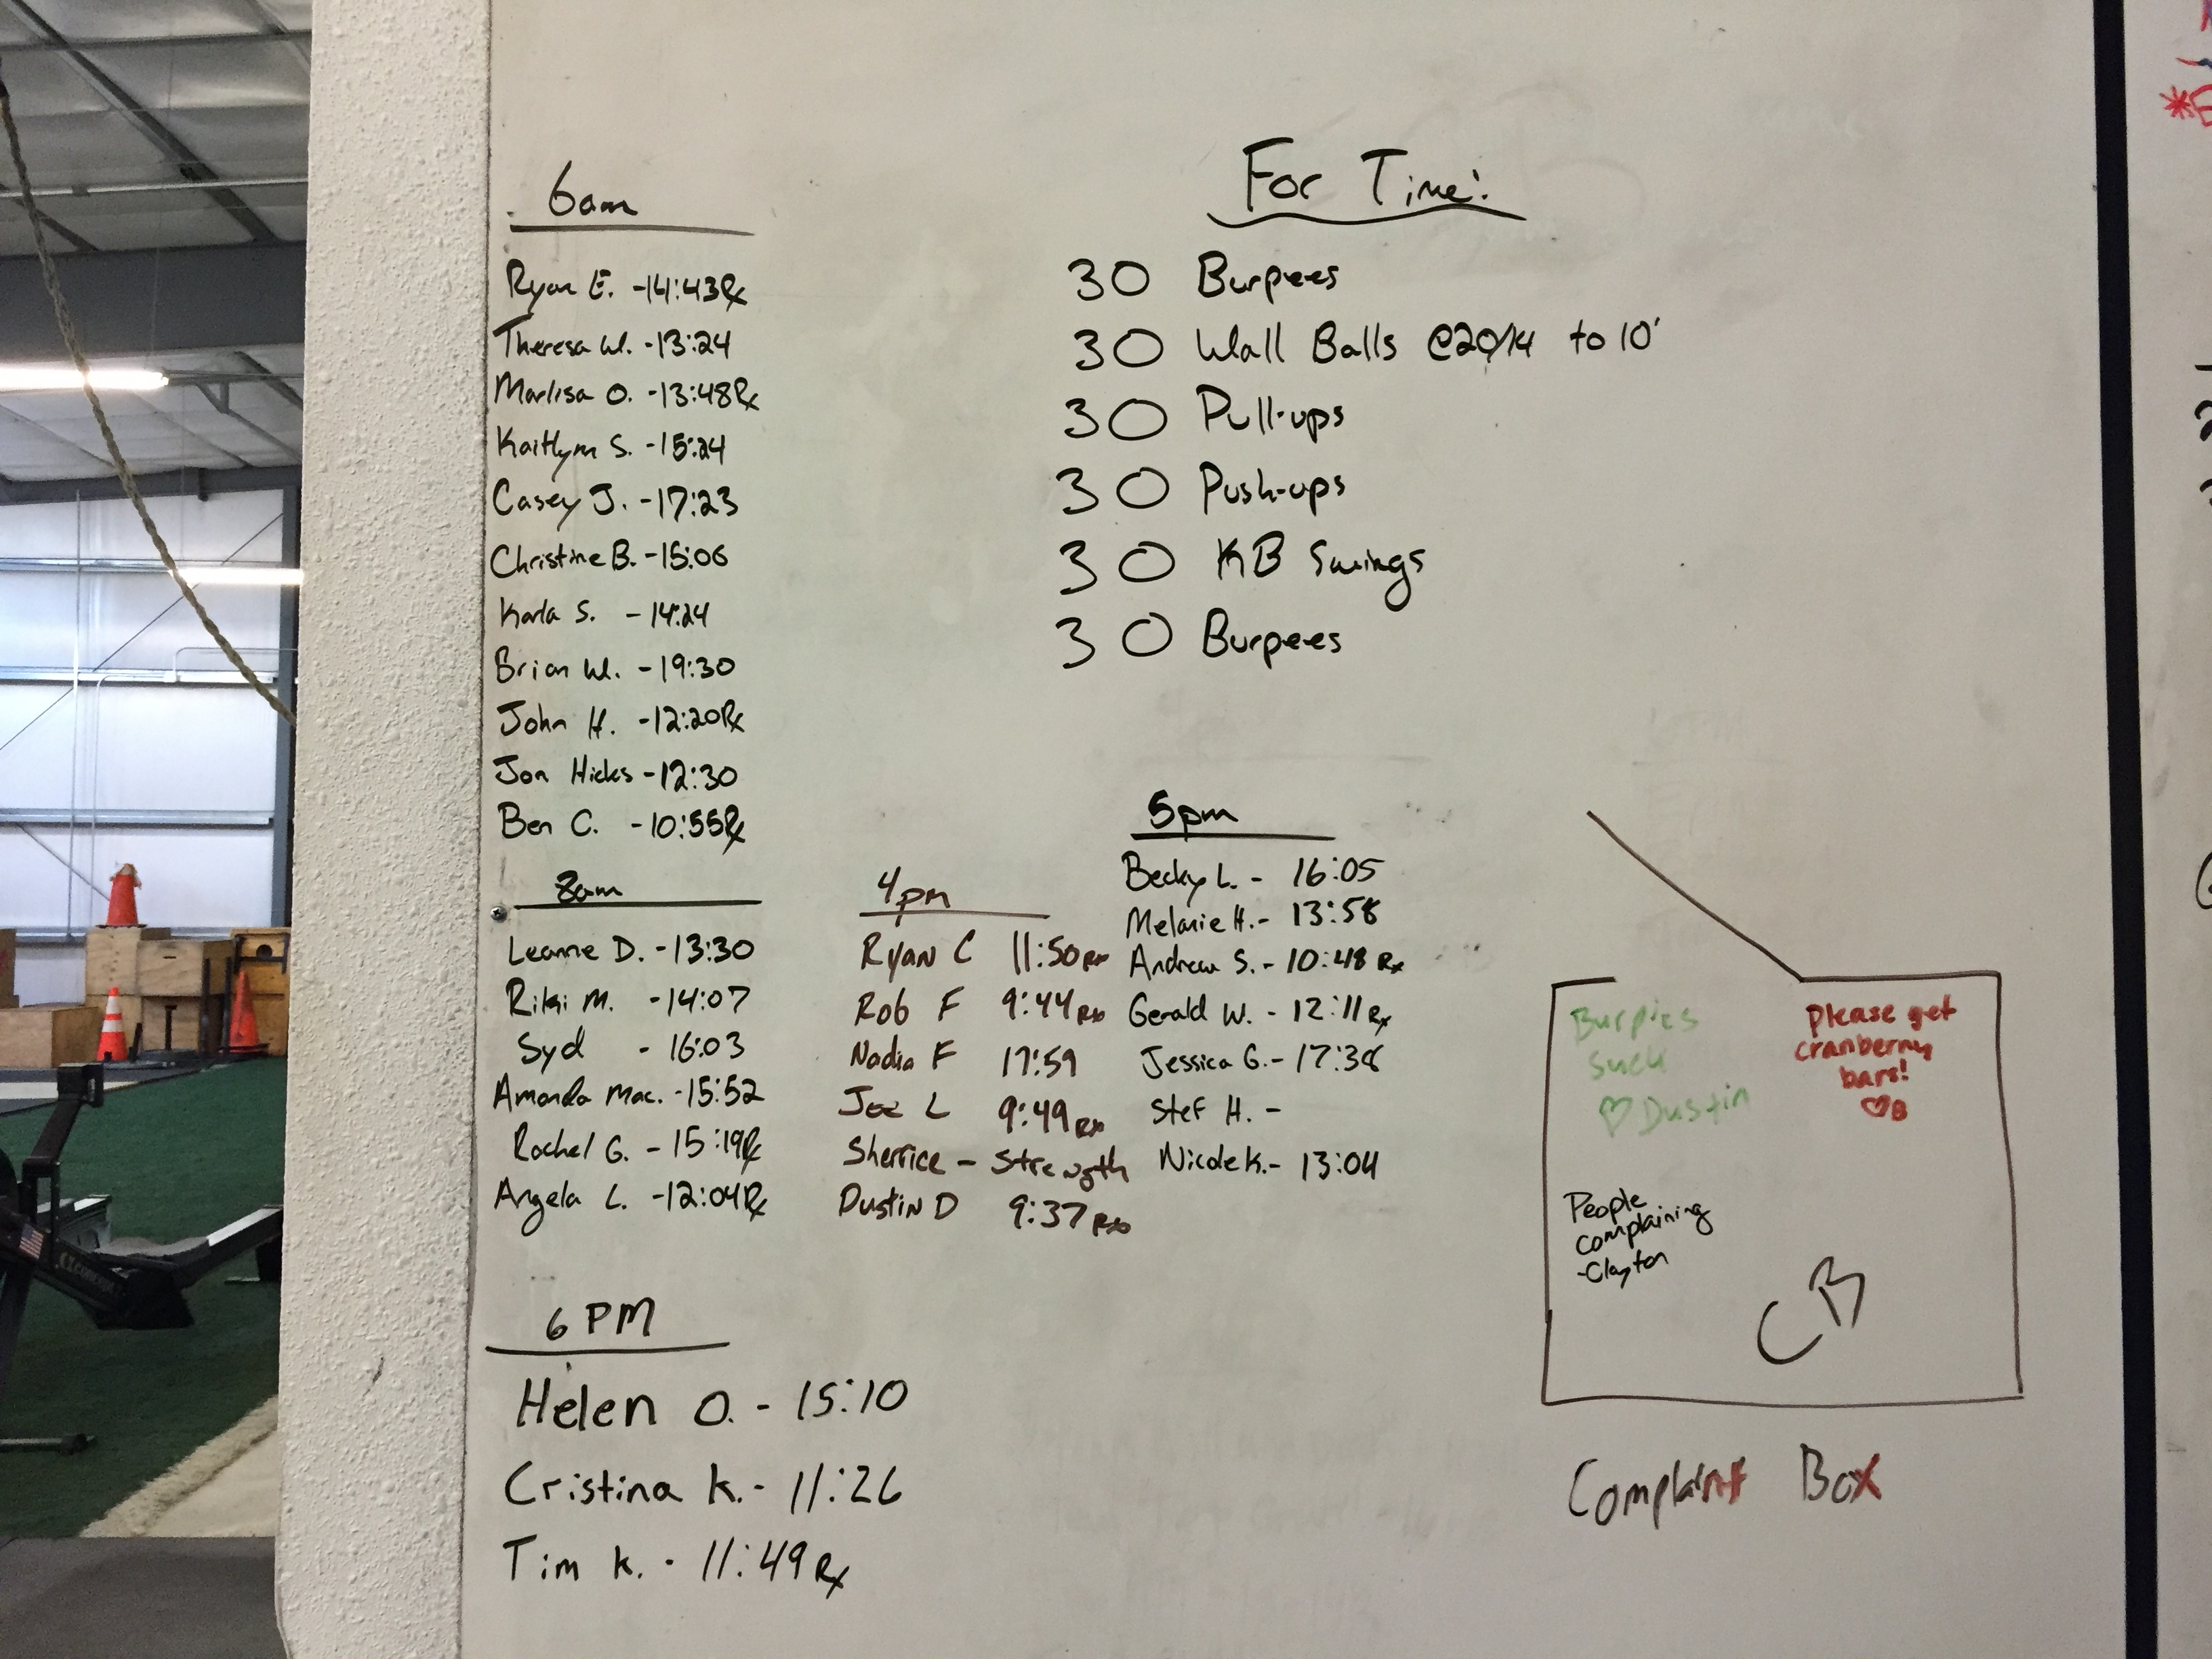 6am
Ryan E. -14:43Rx
Theresa W. -13:24
Marlisa O. -13:48Rx
Kaitlym S. -15:24
Casey J. -17:23
Christine B. -15:06
Karla S. - 14:24
Brian W. -19:30
John H. -12:20Rx
Jon Hicks -12:30
Ben C. -10:55Rx
8am
Leanne D. -13:30
Riki M. -14:07
Syd - 16:03
Amanda Mac. -15:52
Rachel G. - 15:19Rx
Angela L. -12:04Rx
6 PM
Helen O. - 15:10
Cristina K. - 11:26
Tim K. - 11:49 Rx
For Time:
30 Burpees
30 Wall Balls @20/14 to 10'
30 Pull-ups
30 Push-ups
30 KB Swings
30 Burpees
4pm
Ryan C 11:50 Rx
Rob F 9:44 Rx
Nadia F 17:59
Joe L 9:49 Rx
Sherrice - Strength
Dustin D 9:37 Rx
5pm
Becky L. - 16:05
Melanie H. - 13:58
Andrew S. - 10:48 Rx
Gerald W. - 12:11 Rx
Jessica G. - 17:38
Stef H. -
Nicole K. - 13:04
Burpies
suck
♡ Dustin
Please get
cranberry
bars!
♡B
People
complaining
-Clayton
CB
Complaint Box